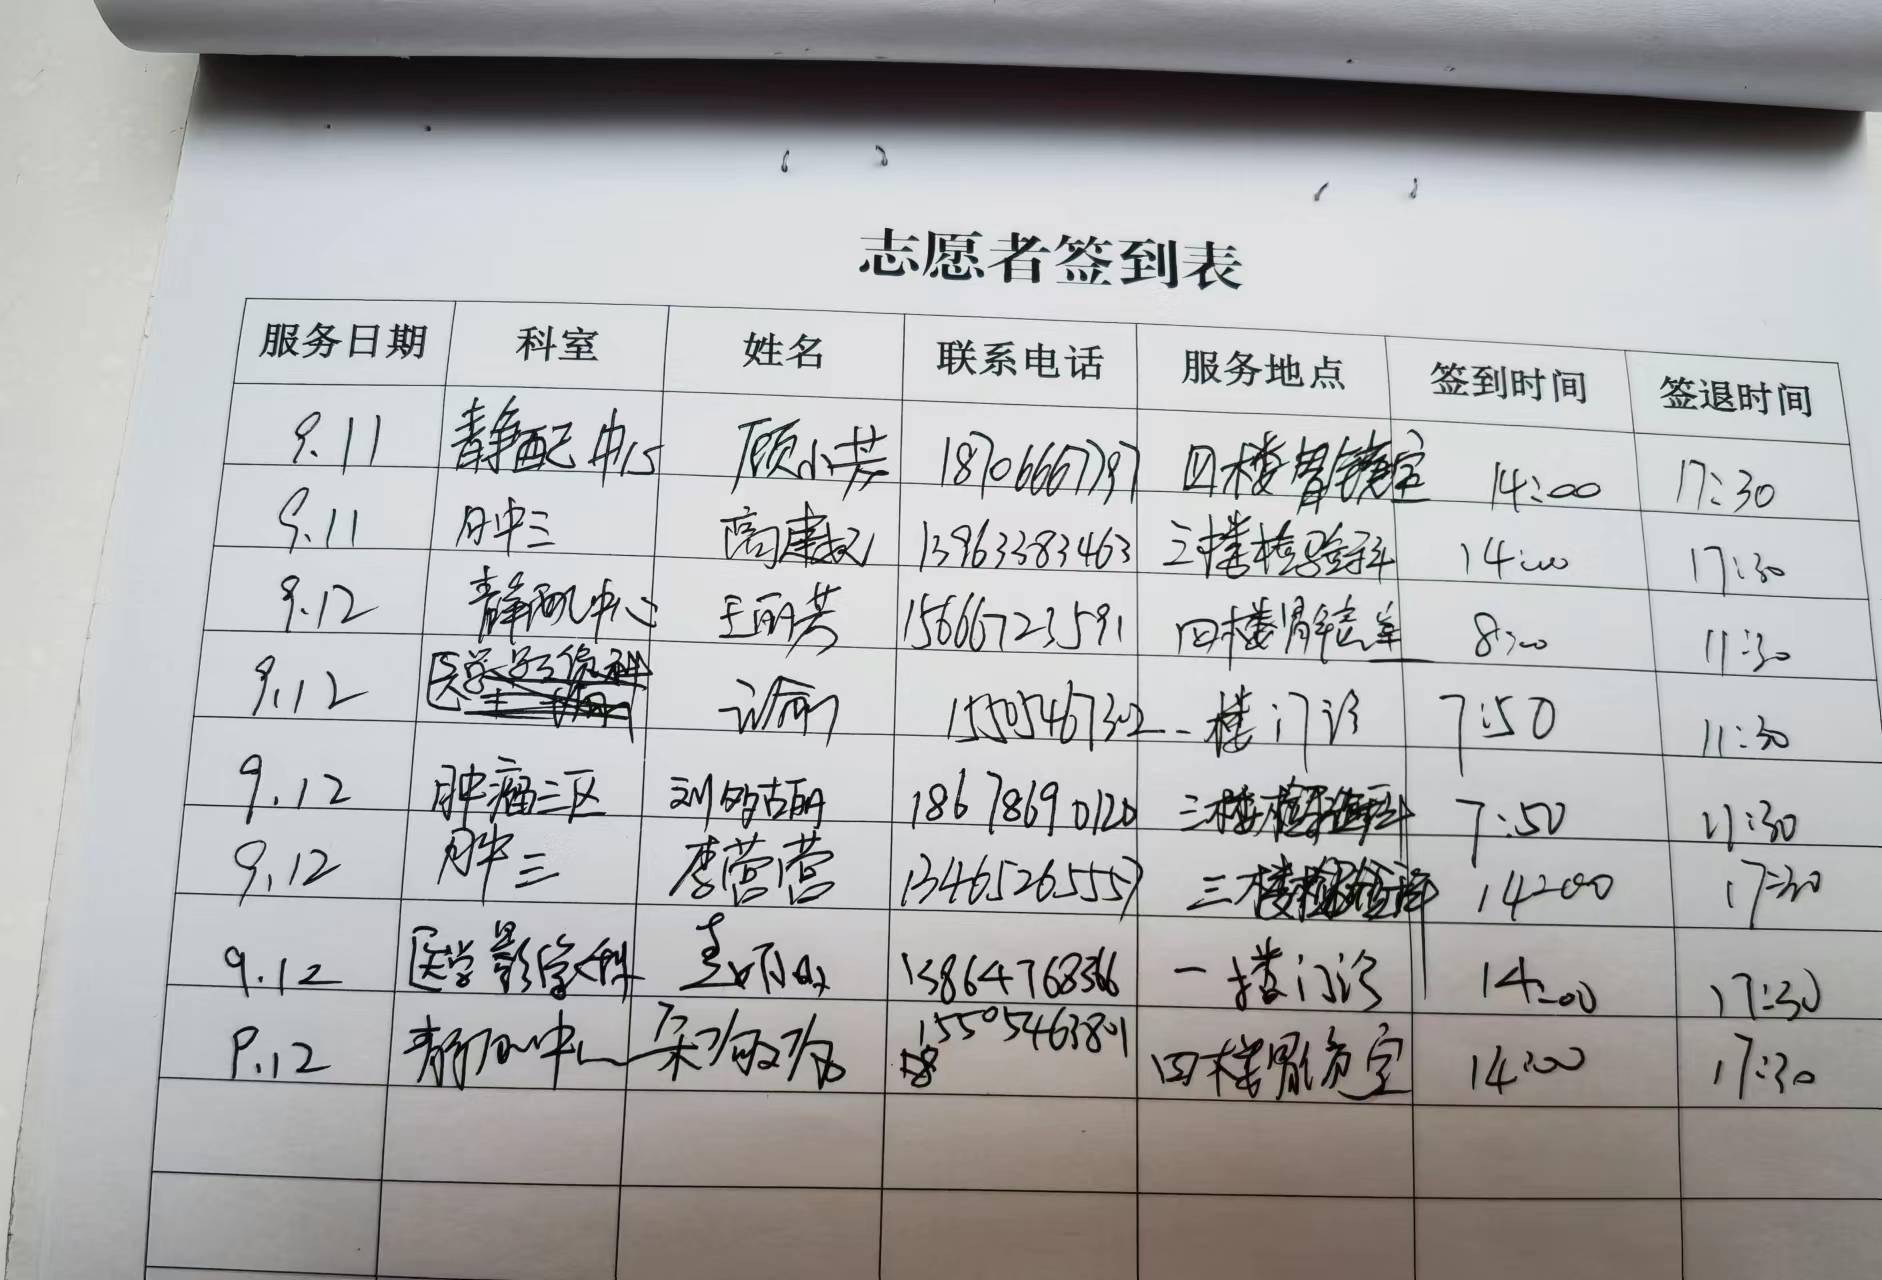 志愿者签到表
服务日期 科室 姓名 联系电话 服务地点 签到时间 签退时间
9.11 静配中心 顾小芳 18706667797 四楼胃镜室 14:00 17:30
9.11 肿三 高建 13963383463 三楼检验科 14:00 17:30
9.12 静配中心 王丽芳 15666723591 四楼胃镜室 8:00 11:30
9.12 医学影像科 15505467302 一楼门诊 7:50 11:30
9.12 肿瘤三区 刘 丽 18678690120 三楼检验科 7:50 11:30
9.12 肿三 李营营 13465265557 三楼检验科 14:00 17:30
9.12 医学影像科 13864768366 一楼门诊 14:00 17:30
9.12 静配中心 15505463801 四楼胃镜室 14:00 17:30